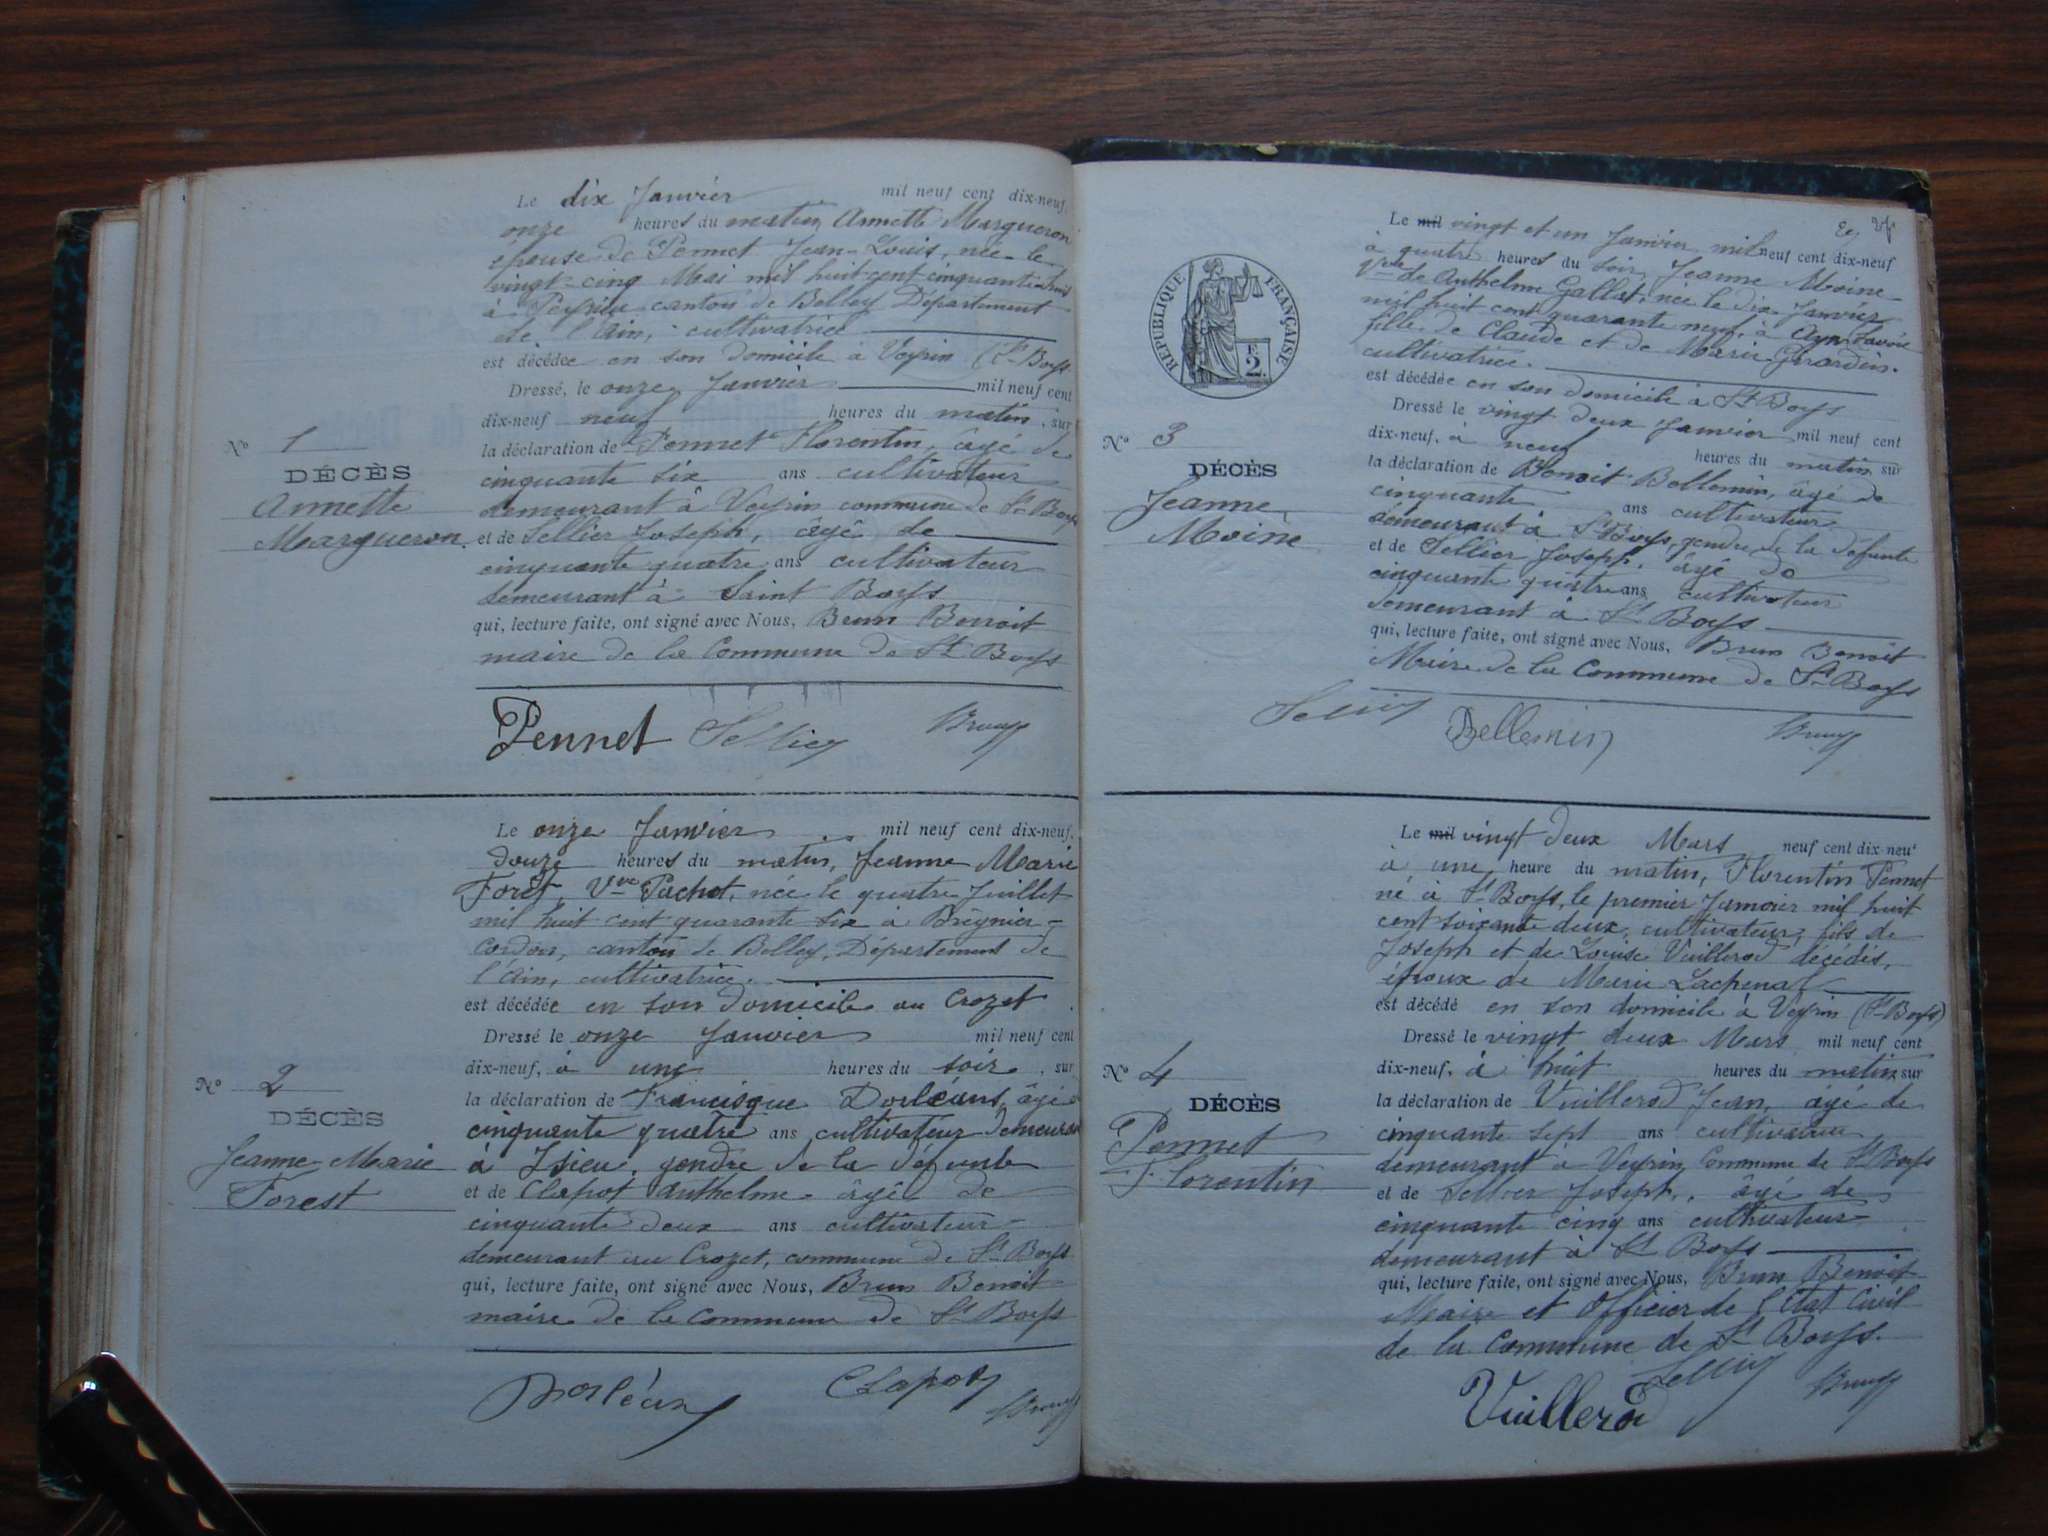 Le dix Janvier mil neuf cent dix-neuf,
onze heures du matin, Annette Margueron
épouse de Pennet Jean-Louis, née le
vingt-cinq Mai mil huit cent cinquante huit
à Peyrieu canton de Belley Département
de l'Ain, cultivatrice
est décédée en son domicile à Veyrin (St Boys
Dressé, le onze Janvier mil neuf cent
dix-neuf neuf heures du matin, sur
la déclaration de Pennet Florentin, âgé de
cinquante six ans cultivateur
demeurant à Veyrin commune de St Boys
et de Sellier Joseph, âgé de
cinquante quatre ans cultivateur
demeurant à Saint Boys
qui, lecture faite, ont signé avec Nous, Brun Benoit
maire de la Commune de St Boys
No 1
DÉCÈS
Annette
Margueron.
Pennet Sellier Brun
Le onze Janvier mil neuf cent dix-neuf,
douze heures du matin, Jeanne Marie
Forêt, Vve Pachot, née le quatre Juillet
mil huit cent quarante six à Brégnier-
Cordon, canton de Belley, Département de
l'Ain, cultivatrice.
est décédée en son domicile au Crozet.
Dressé le onze Janvier mil neuf cent
dix-neuf, à une heures du soir, sur
la déclaration de Francisque Dorléans, âgé de
cinquante quatre ans cultivateur demeurant
à Izieu, gendre de la défunte
et de Clapot Anthelme âgé de
cinquante deux ans cultivateur
demeurant au Crozet, commune de St Boys
qui, lecture faite, ont signé avec Nous, Brun Benoit
maire de la Commune de St Boys
No 2
DÉCÈS
Jeanne Marie
Forest
Dorléans Clapot Brun
RÉPUBLIQUE FRANÇAISE
2
Le mil vingt et un Janvier mil neuf cent dix-neuf
à quatre heures du soir, Jeanne Moine
Vve de Anthelme Gallet, née le dix Janvier
mil huit cent quarante neuf à Ayn Savoie
fille de Claude et de Marie Girardin.
cultivatrice.
est décédée en son domicile à St Boys
Dressé le vingt deux Janvier mil neuf cent
dix-neuf, à neuf heures du matin sur
la déclaration de Benoit Bellemin, âgé de
cinquante ans cultivateur
demeurant à St Boys, gendre de la défunte
et de Sellier Joseph, âgé de
cinquante quatre ans cultivateur
demeurant à St Boys
qui, lecture faite, ont signé avec Nous, Brun Benoit
Maire de la Commune de St Boys
No 3
DÉCÈS
Jeanne
Moine
Sellier Bellemin Brun
Le mil vingt deux Mars neuf cent dix-neuf
à une heure du matin, Florentin Pennet
né à St Boys, le premier Janvier mil huit
cent soixante deux, cultivateur, fils de
Joseph et de Louise Vuillerod décédés,
époux de Marie Lachenal
est décédé en son domicile à Veyrin (St Boys)
Dressé le vingt deux Mars mil neuf cent
dix-neuf, à huit heures du matin sur
la déclaration de Vuillerod Jean, âgé de
cinquante sept ans cultivateur
demeurant à Veyrin Commune de St Boys
et de Sellier Joseph, âgé de
cinquante cinq ans cultivateur
demeurant à St Boys
qui, lecture faite, ont signé avec Nous, Brun Benoit
Maire et Officier de l'état Civil
de la Commune de St Boys.
No 4
DÉCÈS
Pennet
Florentin
Vuillerod Sellier Brun